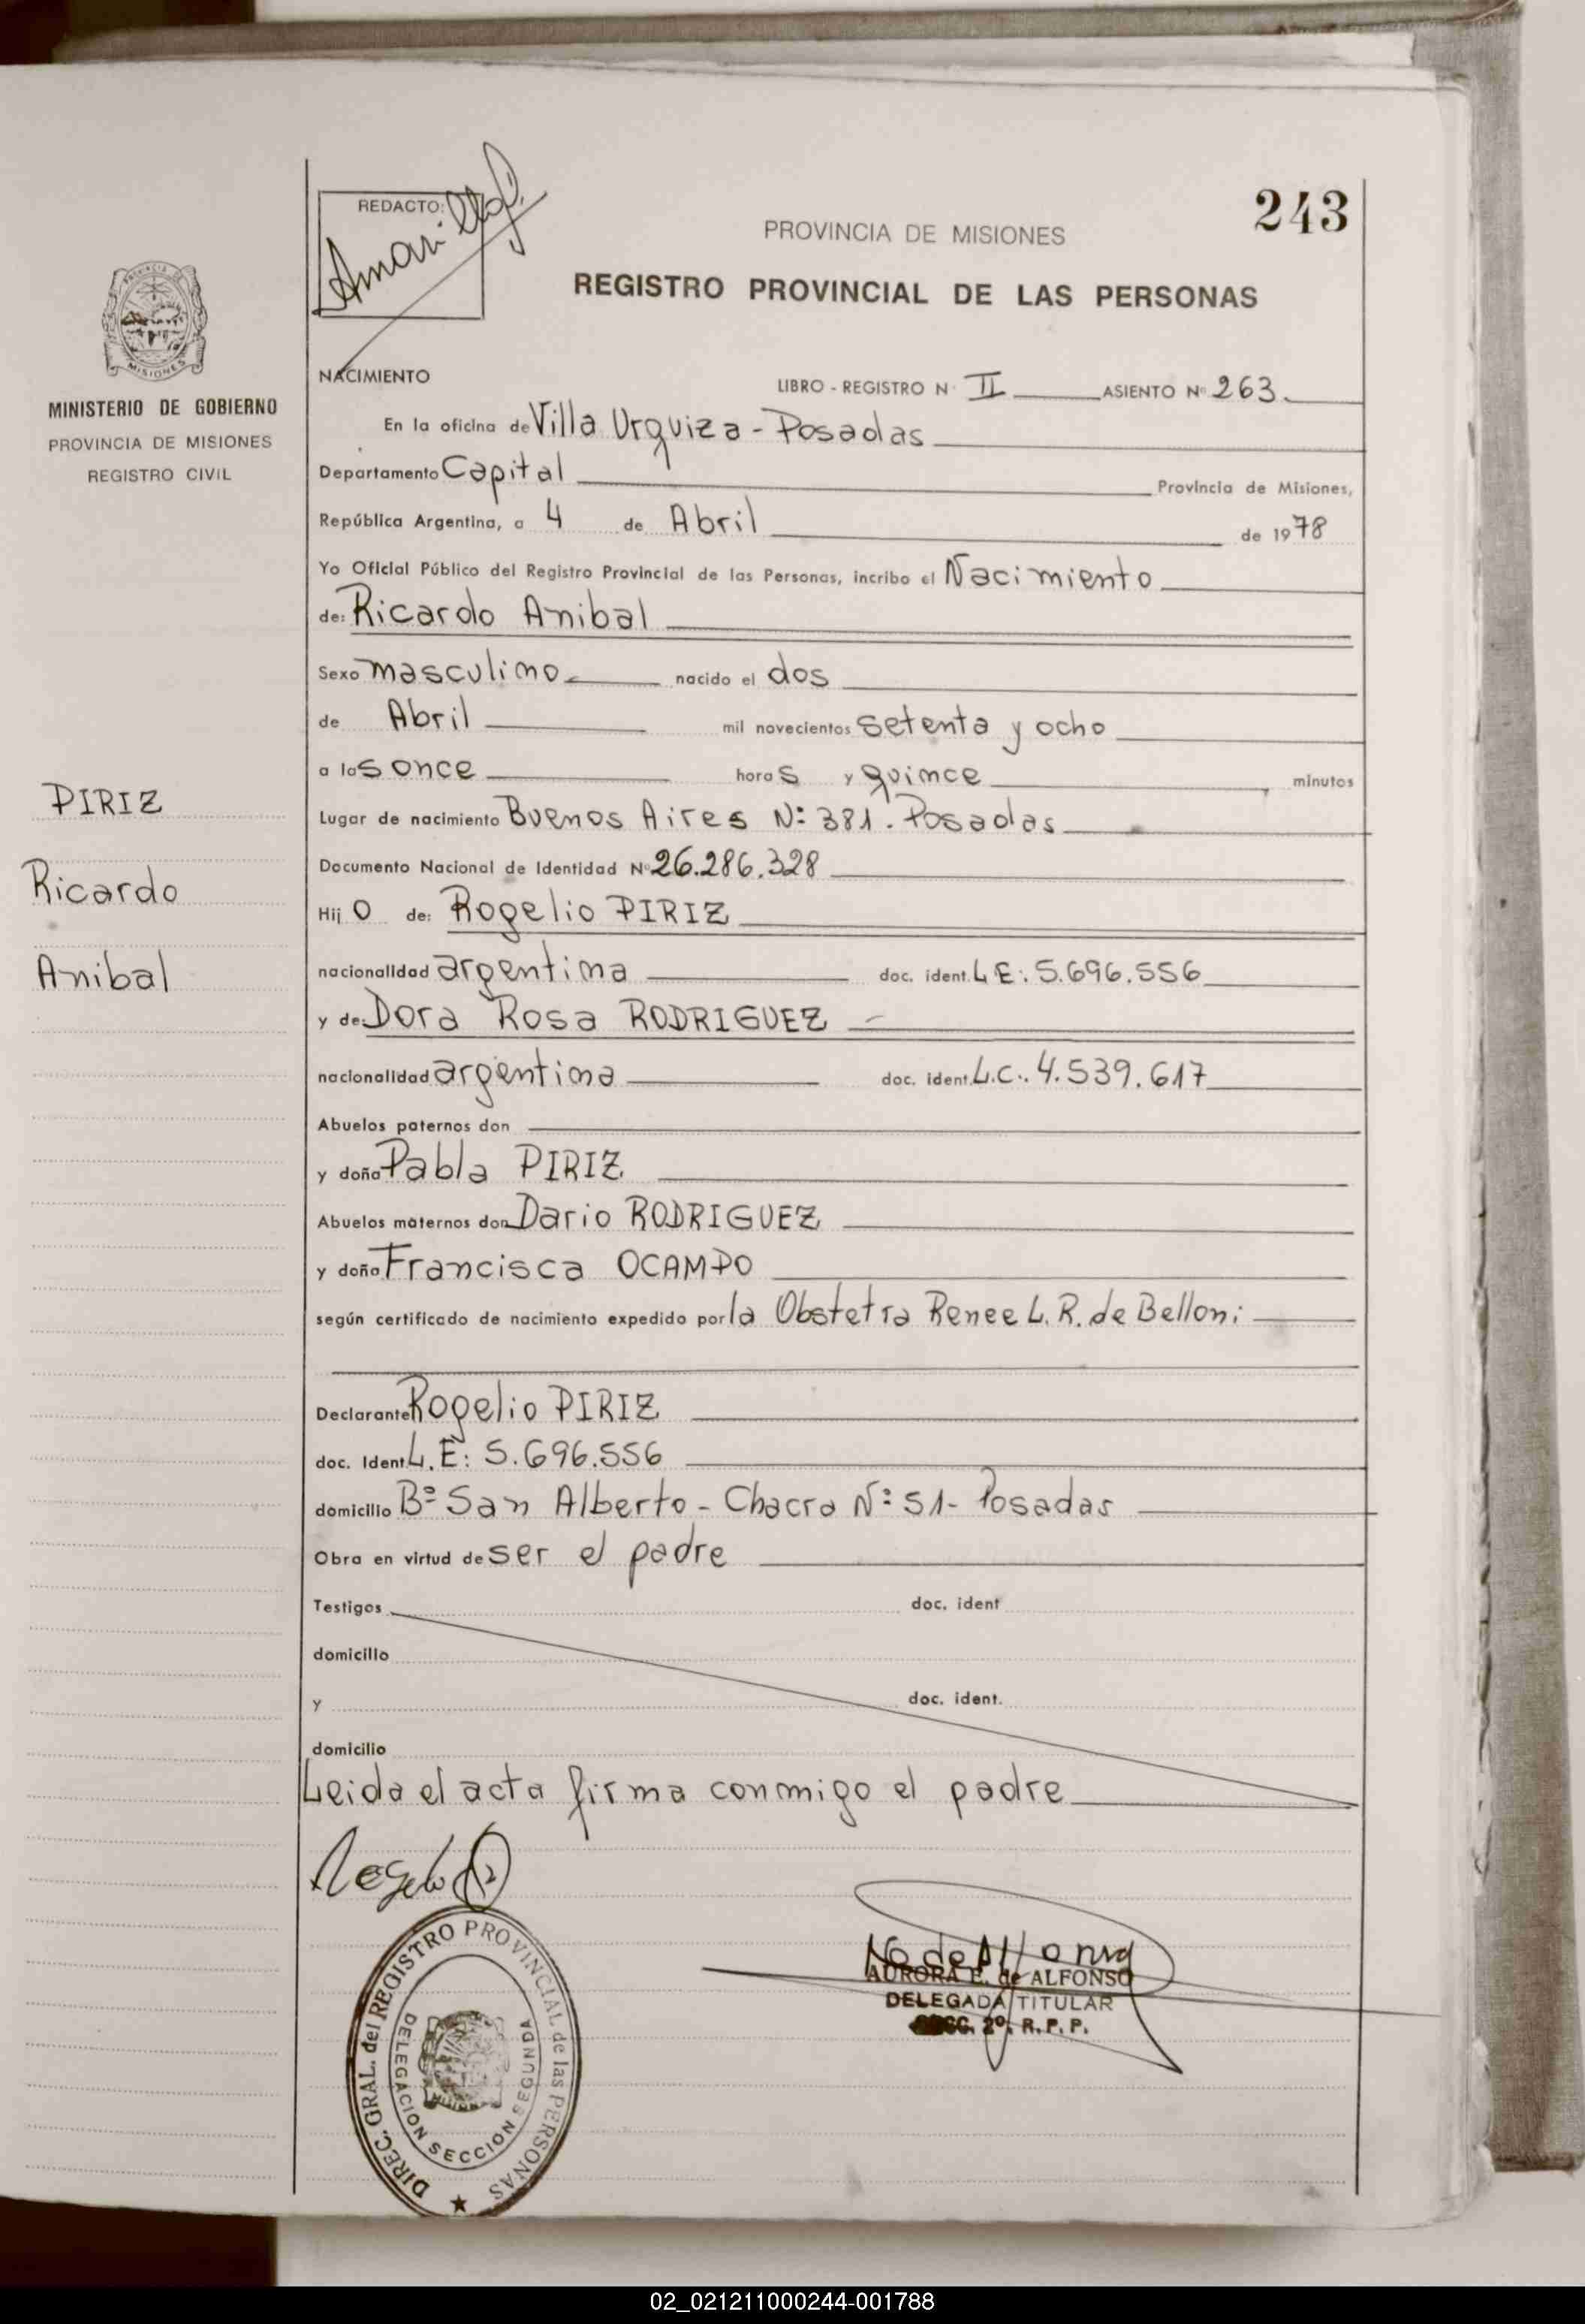 243
REDACTO:
PROVINCIA DE MISIONES
REGISTRO PROVINCIAL DE LAS PERSONAS
MISIONES
MINISTERIO DE GOBIERNO
PROVINCIA DE MISIONES
REGISTRO CIVIL
NACIMIENTO
LIBRO - REGISTRO N° II ASIENTO N° 263.
En la oficina de Villa Urquiza - Posadas
Departamento Capital Provincia de Misiones,
República Argentina, a 4 de Abril de 1978
Yo Oficial Público del Registro Provincial de las Personas, incribo el Nacimiento
de: Ricardo Anibal
Sexo masculino nacido el dos
de Abril mil novecientos setenta y ocho
a las once horas y quince minutos
PIRIZ
Ricardo
Anibal
Lugar de nacimiento Buenos Aires N: 381. Posadas
Documento Nacional de Identidad N° 26.286.328
Hijo de: Rogelio PIRIZ
nacionalidad argentina doc. ident. L E: 5.696.556
y de: Dora Rosa RODRIGUEZ
nacionalidad argentina doc. ident. L.C.: 4.539.617
Abuelos paternos don
y doña Pabla PIRIZ
Abuelos maternos don Dario RODRIGUEZ
y doña Francisca OCAMPO
según certificado de nacimiento expedido por la Obstetra Renee L. R. de Belloni
Declarante Rogelio PIRIZ
doc. Ident. L.E: 5.696.556
domicilio B° San Alberto - Chacra N: 51- Posadas
Obra en virtud de ser el padre
Testigos doc. ident
domicilio
y doc. ident.
domicilio
Leida el acta firma conmigo el padre
AURORA E. de ALFONSO
DELEGADA TITULAR
SECC. 2°. R. P. P.
DIREC. GRAL. del REGISTRO PROVINCIAL de las PERSONAS
DELEGACION SECCION SEGUNDA
02_021211000244-001788